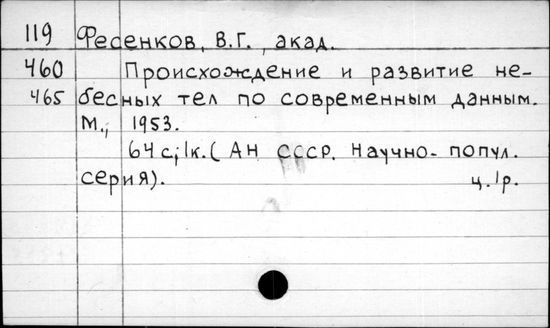 119 Фесенков, В.Г., акад.
460 Происхождение и развитие не-
465 бесных тел по современным данным.
М., 1953.
64 с; 1к. (АН СССР. Научно-попул.
серия). ц. 1р.